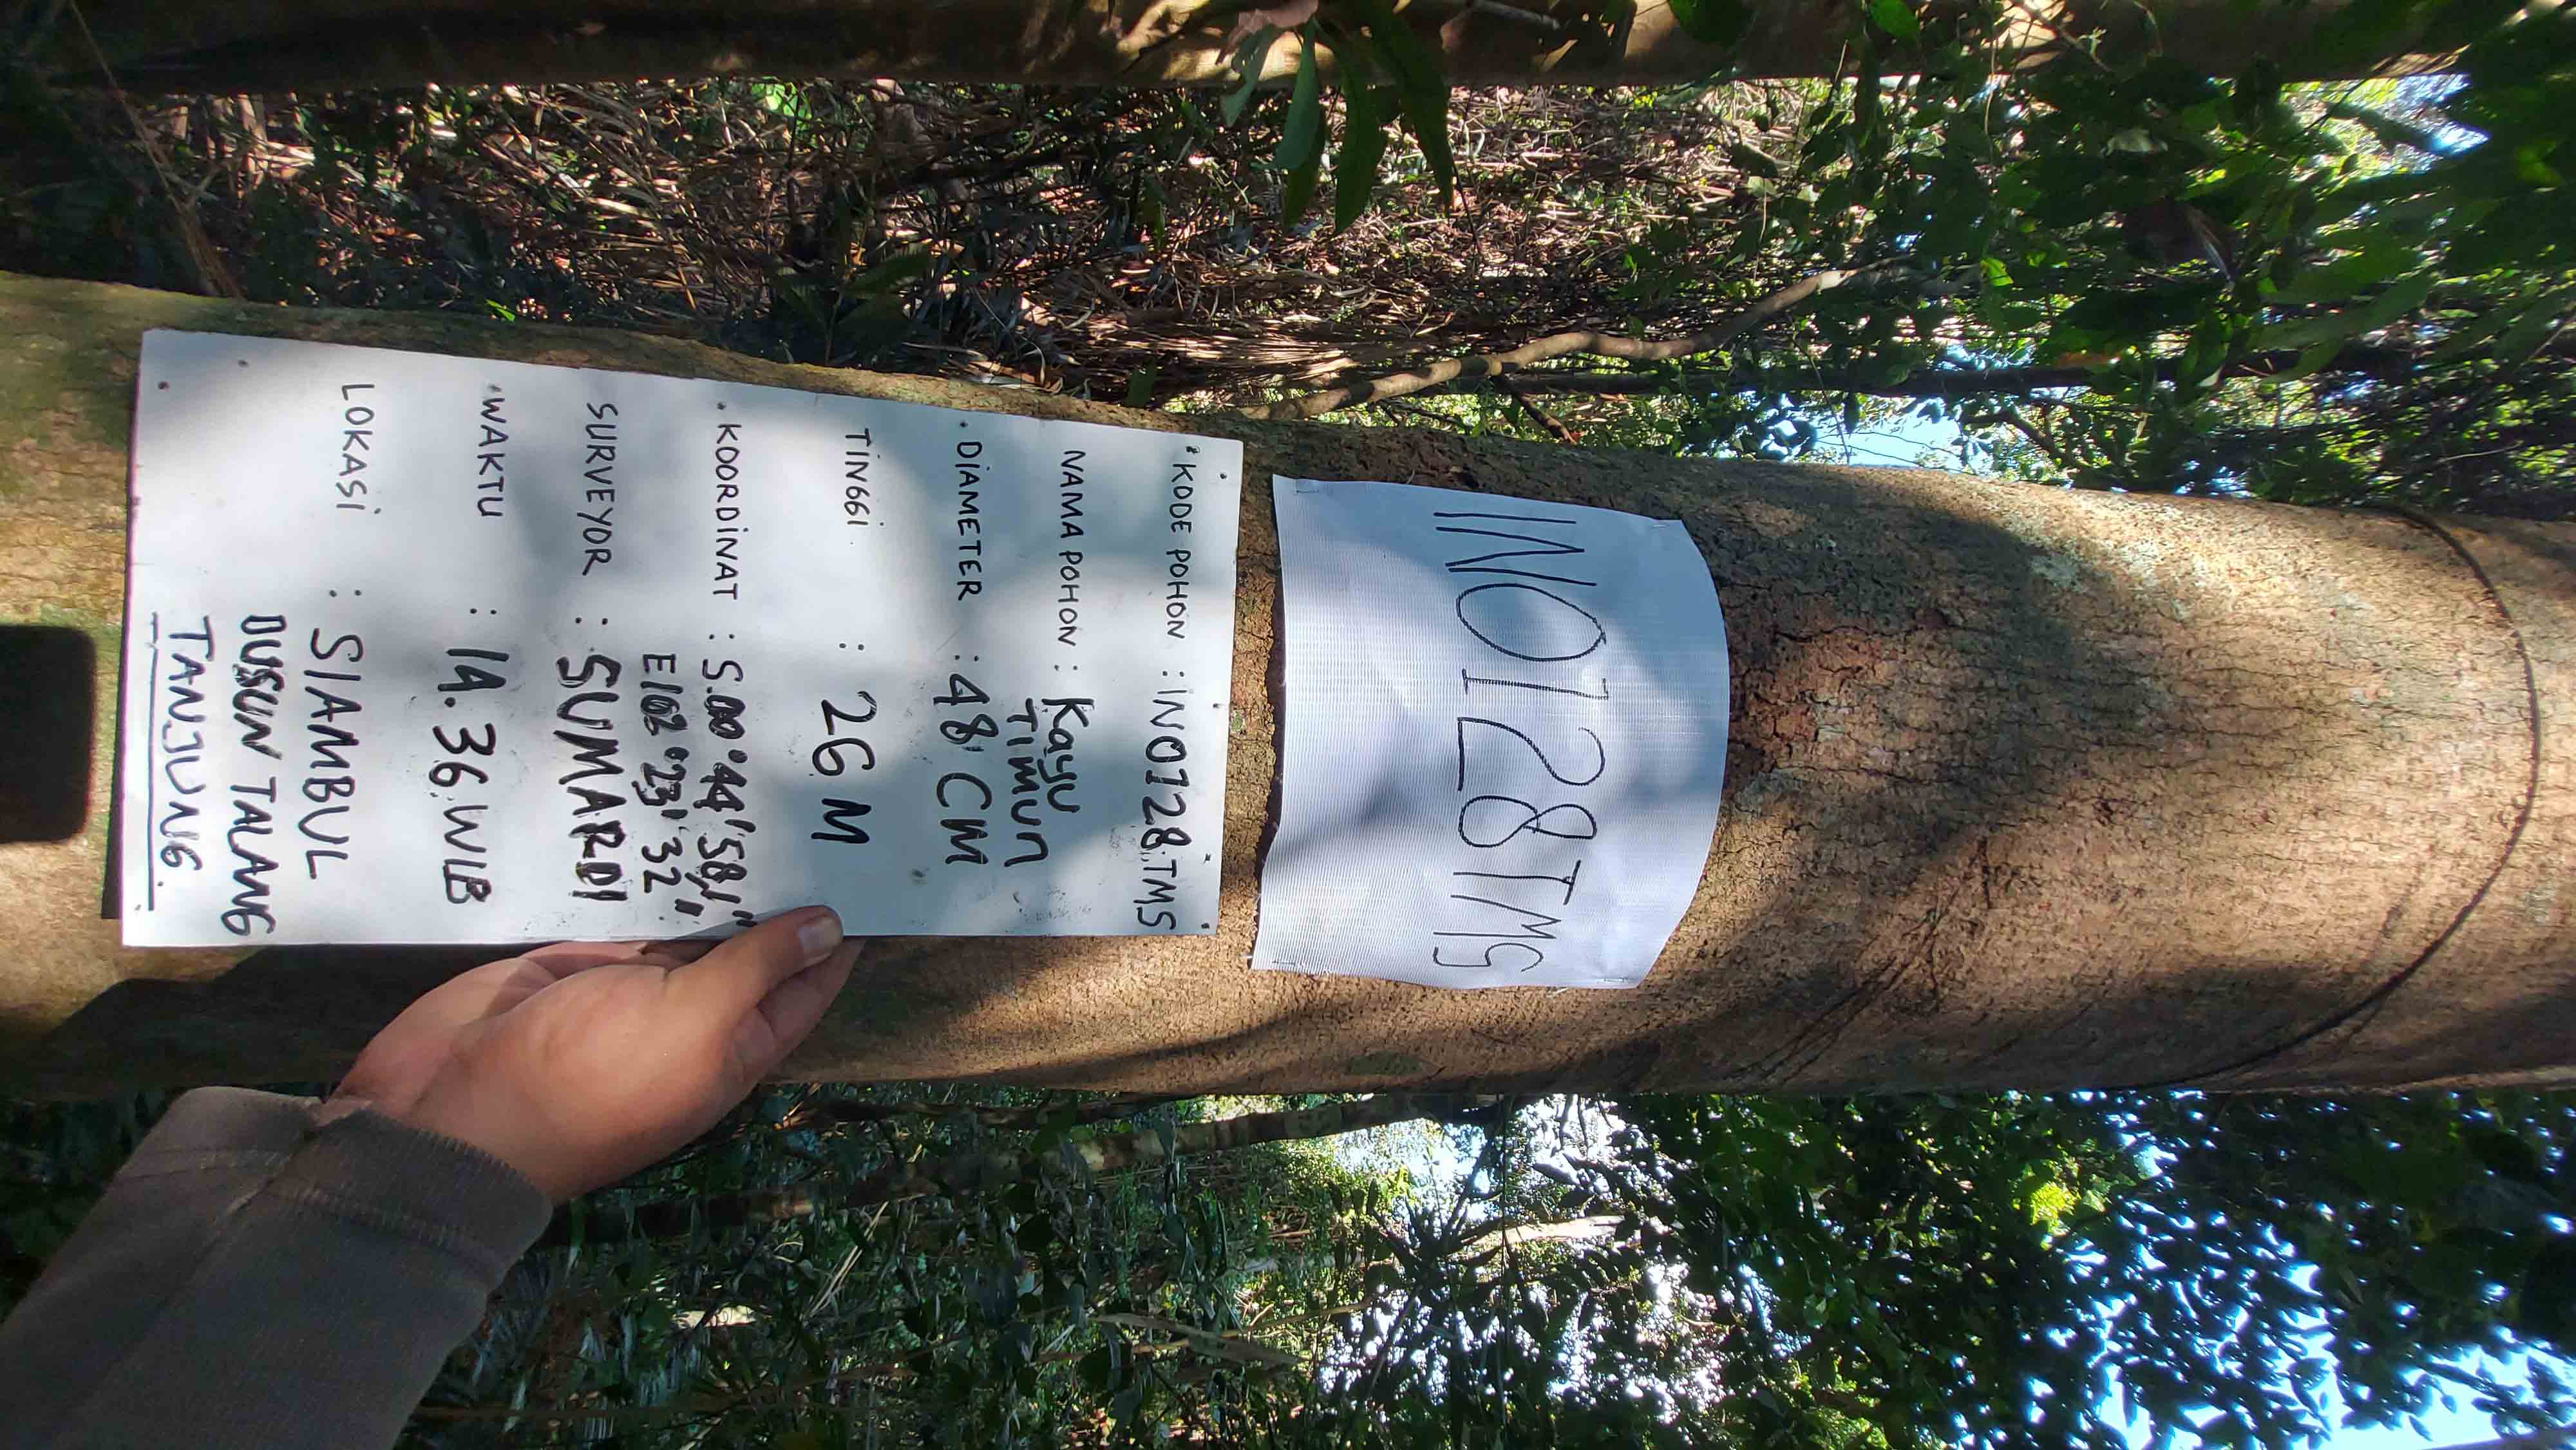 IN0128TMS
• KODE POHON : IN0128.TMS
NAMA POHON : Kayu
Timun
• DIAMETER : 48 CM
TINGGI : 26 M
• KOORDINAT : S.00°44'58,1"
E102°23'32"
SURVEYOR : SUMARDI
• WAKTU : 14.36 WIB
LOKASI : SIAMBUL
DUSUN TALANG
TANJUNG.